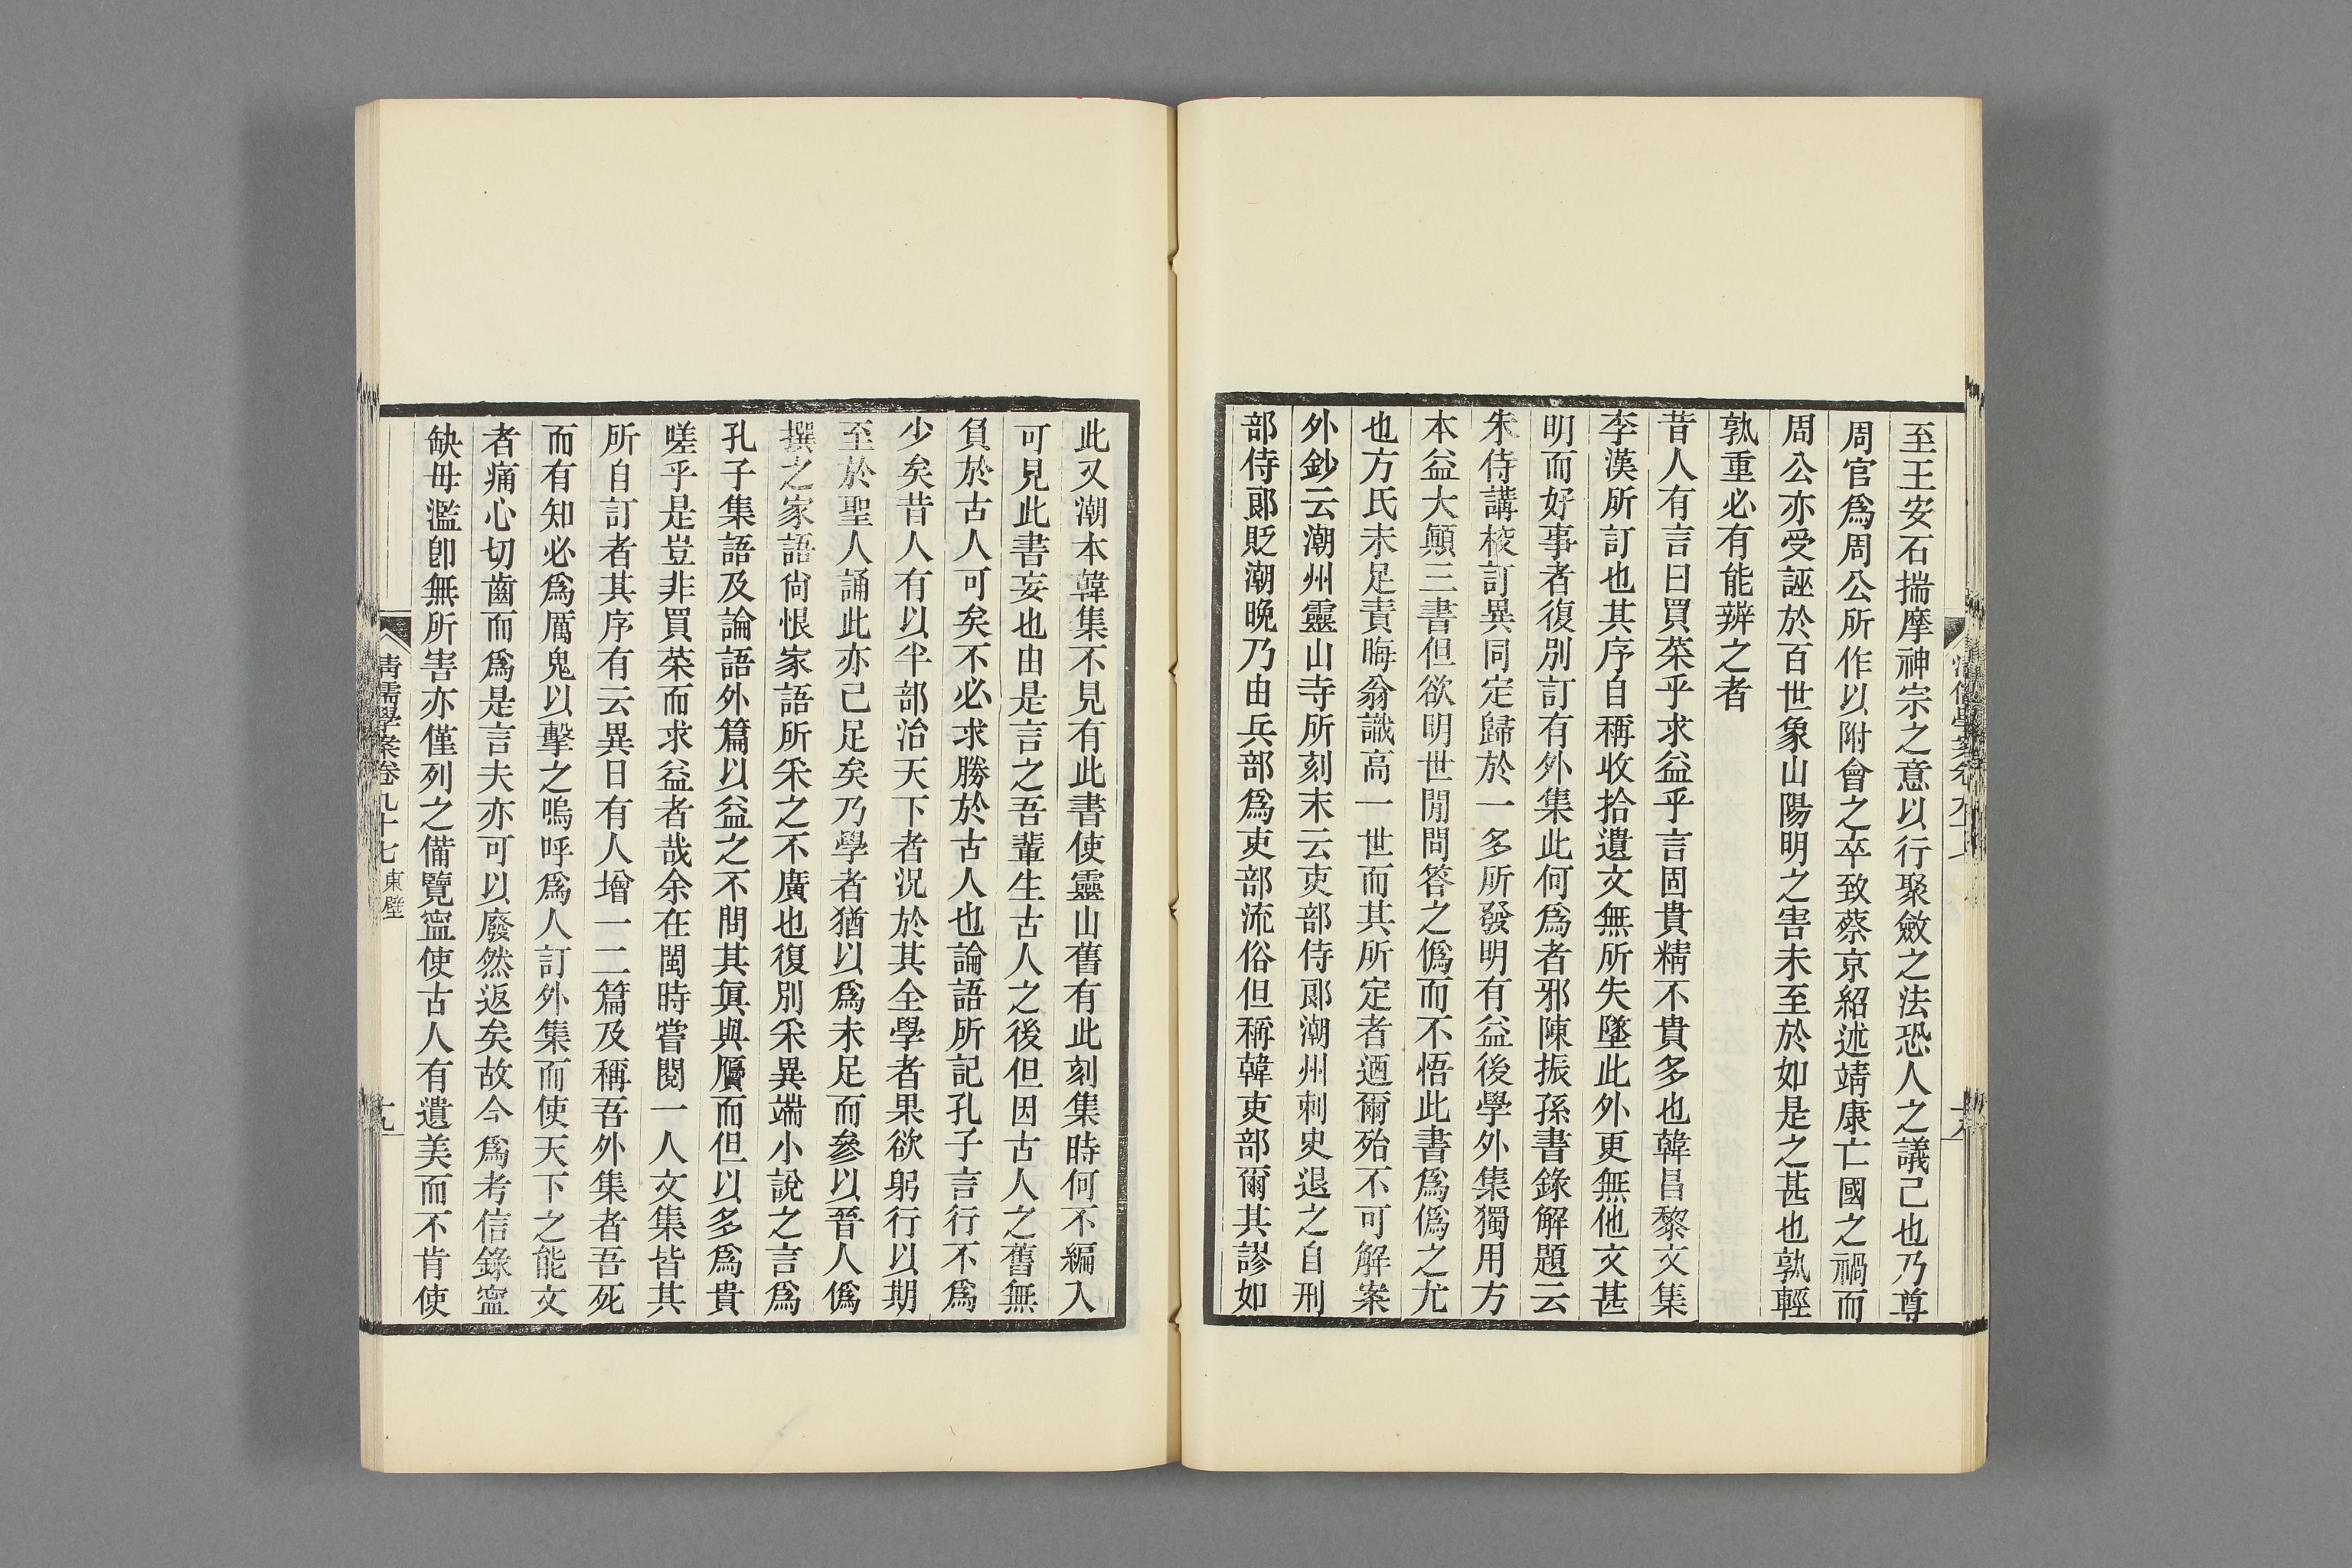 至王安石揣摩神宗之意以行聚斂之法恐人之議己也乃尊
周官爲周公所作以附會之卒致蔡京紹述靖康亡國之禍而
周公亦受誣於百世象山陽明之害未至於如是之甚也孰輕
孰重必有能辨之者
昔人有言曰買菜乎求益乎言固貴精不貴多也韓昌黎文集
李漢所訂也其序自稱收拾遺文無所失墜此外更無他文甚
明而好事者復別訂有外集此何爲者邪陳振孫書錄解題云
朱侍講校訂異同定歸於一多所發明有益後學外集獨用方
本益大顚三書但欲明世閒問答之僞而不悟此書爲僞之尤
也方氏未足責晦翁識高一世而其所定者迺爾殆不可解案
外鈔云潮州靈山寺所刻末云吏部侍郞潮州刺史退之自刑
部侍郞貶潮晚乃由兵部爲吏部流俗但稱韓吏部爾其謬如
此又潮本韓集不見有此書使靈山舊有此刻集時何不編入
可見此書妄也由是言之吾輩生古人之後但因古人之舊無
負於古人可矣不必求勝於古人也論語所記孔子言行不爲
少矣昔人有以半部治天下者況於其全學者果欲躬行以期
至於聖人誦此亦已足矣乃學者猶以爲未足而參以晉人僞
撰之家語尙恨家語所采之不廣也復別采異端小說之言爲
孔子集語及論語外篇以益之不問其眞與贗而但以多爲貴
嗟乎是豈非買菜而求益者哉余在閩時嘗閱一人文集皆其
所自訂者其序有云異日有人增一二篇及稱吾外集者吾死
而有知必爲厲鬼以擊之嗚呼爲人訂外集而使天下之能文
者痛心切齒而爲是言夫亦可以廢然返矣故今爲考信錄寍
缺毋濫卽無所害亦僅列之備覽寍使古人有遺美而不肯使
清儒學案卷九十七 東壁
十九